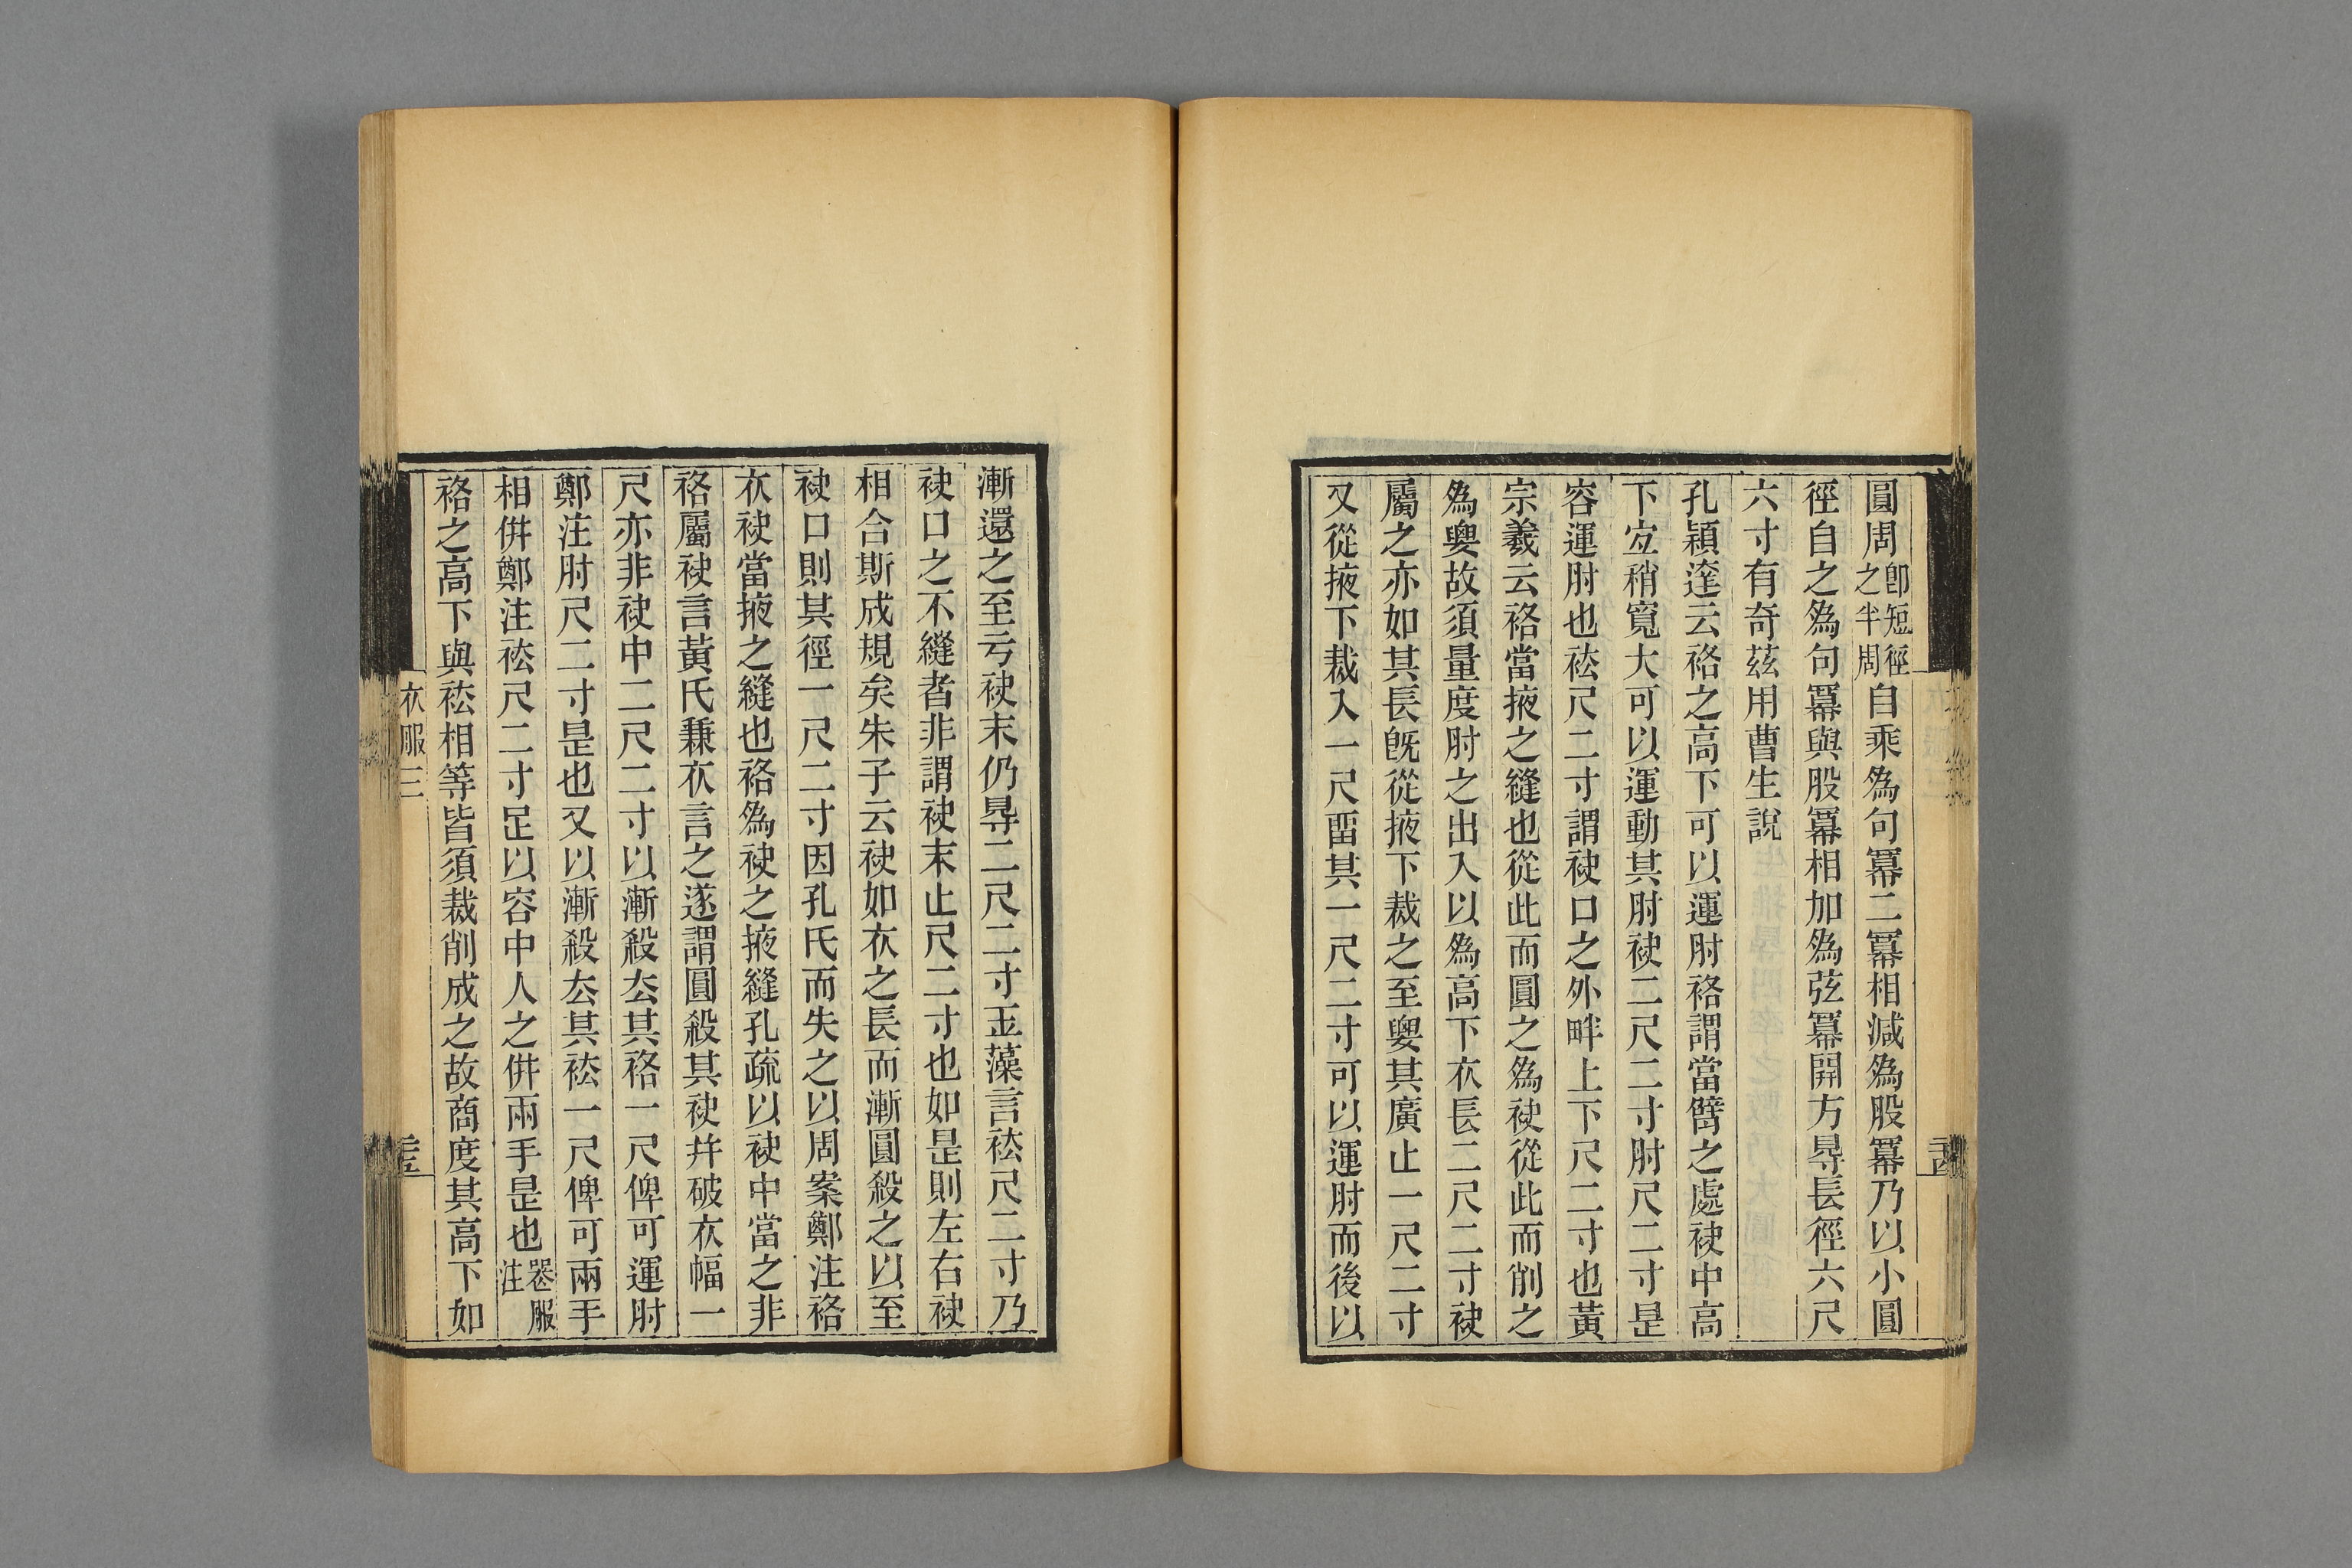 圓周卽短徑之半周自乘爲句冪二冪相減爲股冪乃以小圓
徑自之爲句冪與股冪相加爲弦冪開方㝵長徑六尺
六寸有奇茲用曹生說
孔穎達云袼之高下可以運肘袼謂當臂之處袂中高
下宐稍寬大可以運動其肘袂二尺二寸肘尺二寸是
容運肘也袪尺二寸謂袂口之外畔上下尺二寸也黃
宗羲云袼當掖之縫也從此而圓之爲袂從此而削之
爲㚻故須量度肘之出入以爲高下衣長二尺二寸袂
屬之亦如其長旣從掖下裁之至㚻其廣止一尺二寸
又從掖下裁入一尺畱其一尺二寸可以運肘而後以
漸還之至亏袂末仍㝵二尺二寸玉藻言袪尺二寸乃
袂口之不縫者非謂袂末止尺二寸也如是則左右袂
相合斯成規矣朱子云袂如衣之長而漸圓殺之以至
袂口則其徑一尺二寸因孔氏而失之以周案鄭注袼
衣袂當掖之縫也袼爲袂之掖縫孔疏以袂中當之非
袼屬袂言黃氏兼衣言之遂謂圓殺其袂幷破衣幅一
尺亦非袂中二尺二寸以漸殺厺其袼一尺俾可運肘
鄭注肘尺二寸是也又以漸殺厺其袪一尺俾可兩手
相倂鄭注袪尺二寸足以容中人之倂兩手是也喪服注
袼之高下與袪相等皆須裁削成之故商度其高下如
衣服三